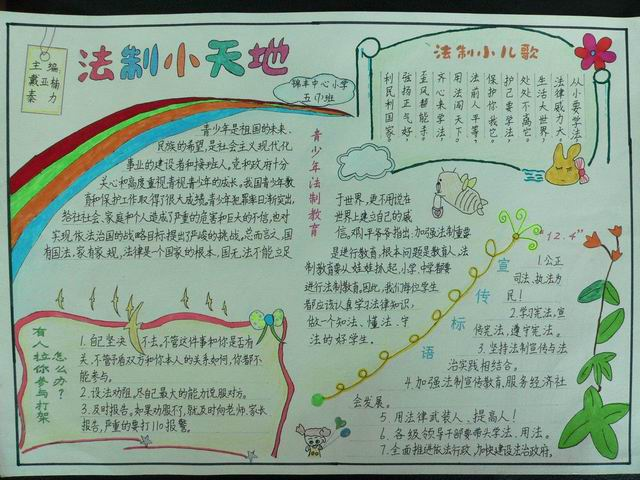 主编
戴亚楠
秦力
法制小天地
锦丰中心小学
五(7)班
法制小儿歌
从小要学法,
法律威力大,
生活大世界,
处处不离它。
护己要学法,
保护你我它。
法前人平等,
用法闯天下。
齐心来学法,
至风替能手。
弘扬正气好,
利民利国家。
青少年法制教育
青少年是祖国的未来、
民族的希望,是社会主义现代化
事业的建设者和接班人,党和政府十分
关心和高度重视青少年的成长,我国青少年教
育和保护工作取得了很大成绩,青少年犯罪率日渐突出,
给社社会、家庭和个人造成了严重的危害和巨大的不信,也对
实现依法治国的战略目标提出了严峻的挑战。总而言之,国
有国法,家有家规,法律是个国家的根本,国无法不能立足
于世界,更不用说在
世界上建立自己的威
信,邓小平爷爷指出:加强法制重要
是进行教育,根本问题是教育人。法
制教育要从娃娃抓起,小学、中学都要
进行法制教育,因此,我们每位学生
都应该认真学习法律知识,
做一个知法、懂法、守
法的好学生。
有人拉你参与打架
怎么办?
1. 自己坚决不去。不管这件事和你是否有
关,不管矛盾双方和你本人的关系如何,你都不
能参与。
2. 设法劝阻,尽自己最大的能力说服对方。
3. 及时报告,如果劝服不了,就及时向老师、家长
报告,严重的要打110报警。
宣传标语
"12.4"
1.公正
司法、执法为
民!
2.学习宪法,宣
传宪法,遵守宪法。
3. 坚持法制宣传与法
治实践相结合。
4.加强法制宣传教育,服务经济社
会发展。
5. 用法律武装人、提高人!
6. 各级领导干部要带头学法、用法。
7. 全面推进依法行政,加快建设法治政府。